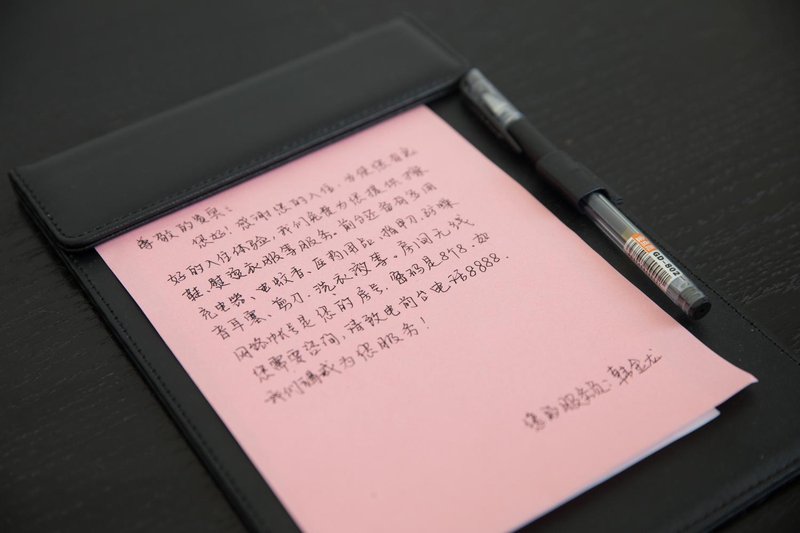 尊敬的贵宾：
您好！感谢您的入住，为使您有更
好的入住体验，我们免费为您提供擦
鞋、熨烫衣服等服务。前台还备有多用
充电器、电蚊香、医药用品、指甲刀、防噪
音耳塞、剪刀、洗衣液等。房间无线
网路帐号是您的房号，密码是818，如
您需要咨询，请致电前台电话8888.
我们竭诚为您服务！
您的服务员：韩金龙
GD-802